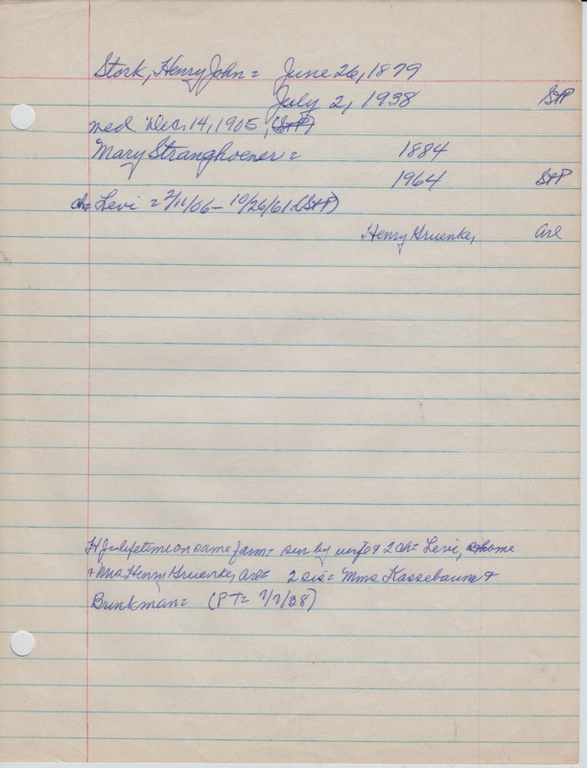 Stork, Henry John = June 26, 1879
July 2, 1938 StP
med Dec. 14, 1905, (StP)
Mary Stranghoener = 1884
1964 StP
ch = Levi = 2/11/06 - 10/26/61 (StP)
Henry Gruenke, Arl
HJ = lifetime on same farm = sur by & 2 ch = Levi, home
+ Mrs Henry Gruenke, = 2 sis = Mmes Kassebaum +
Brinkman = (PT = 7/7/38)